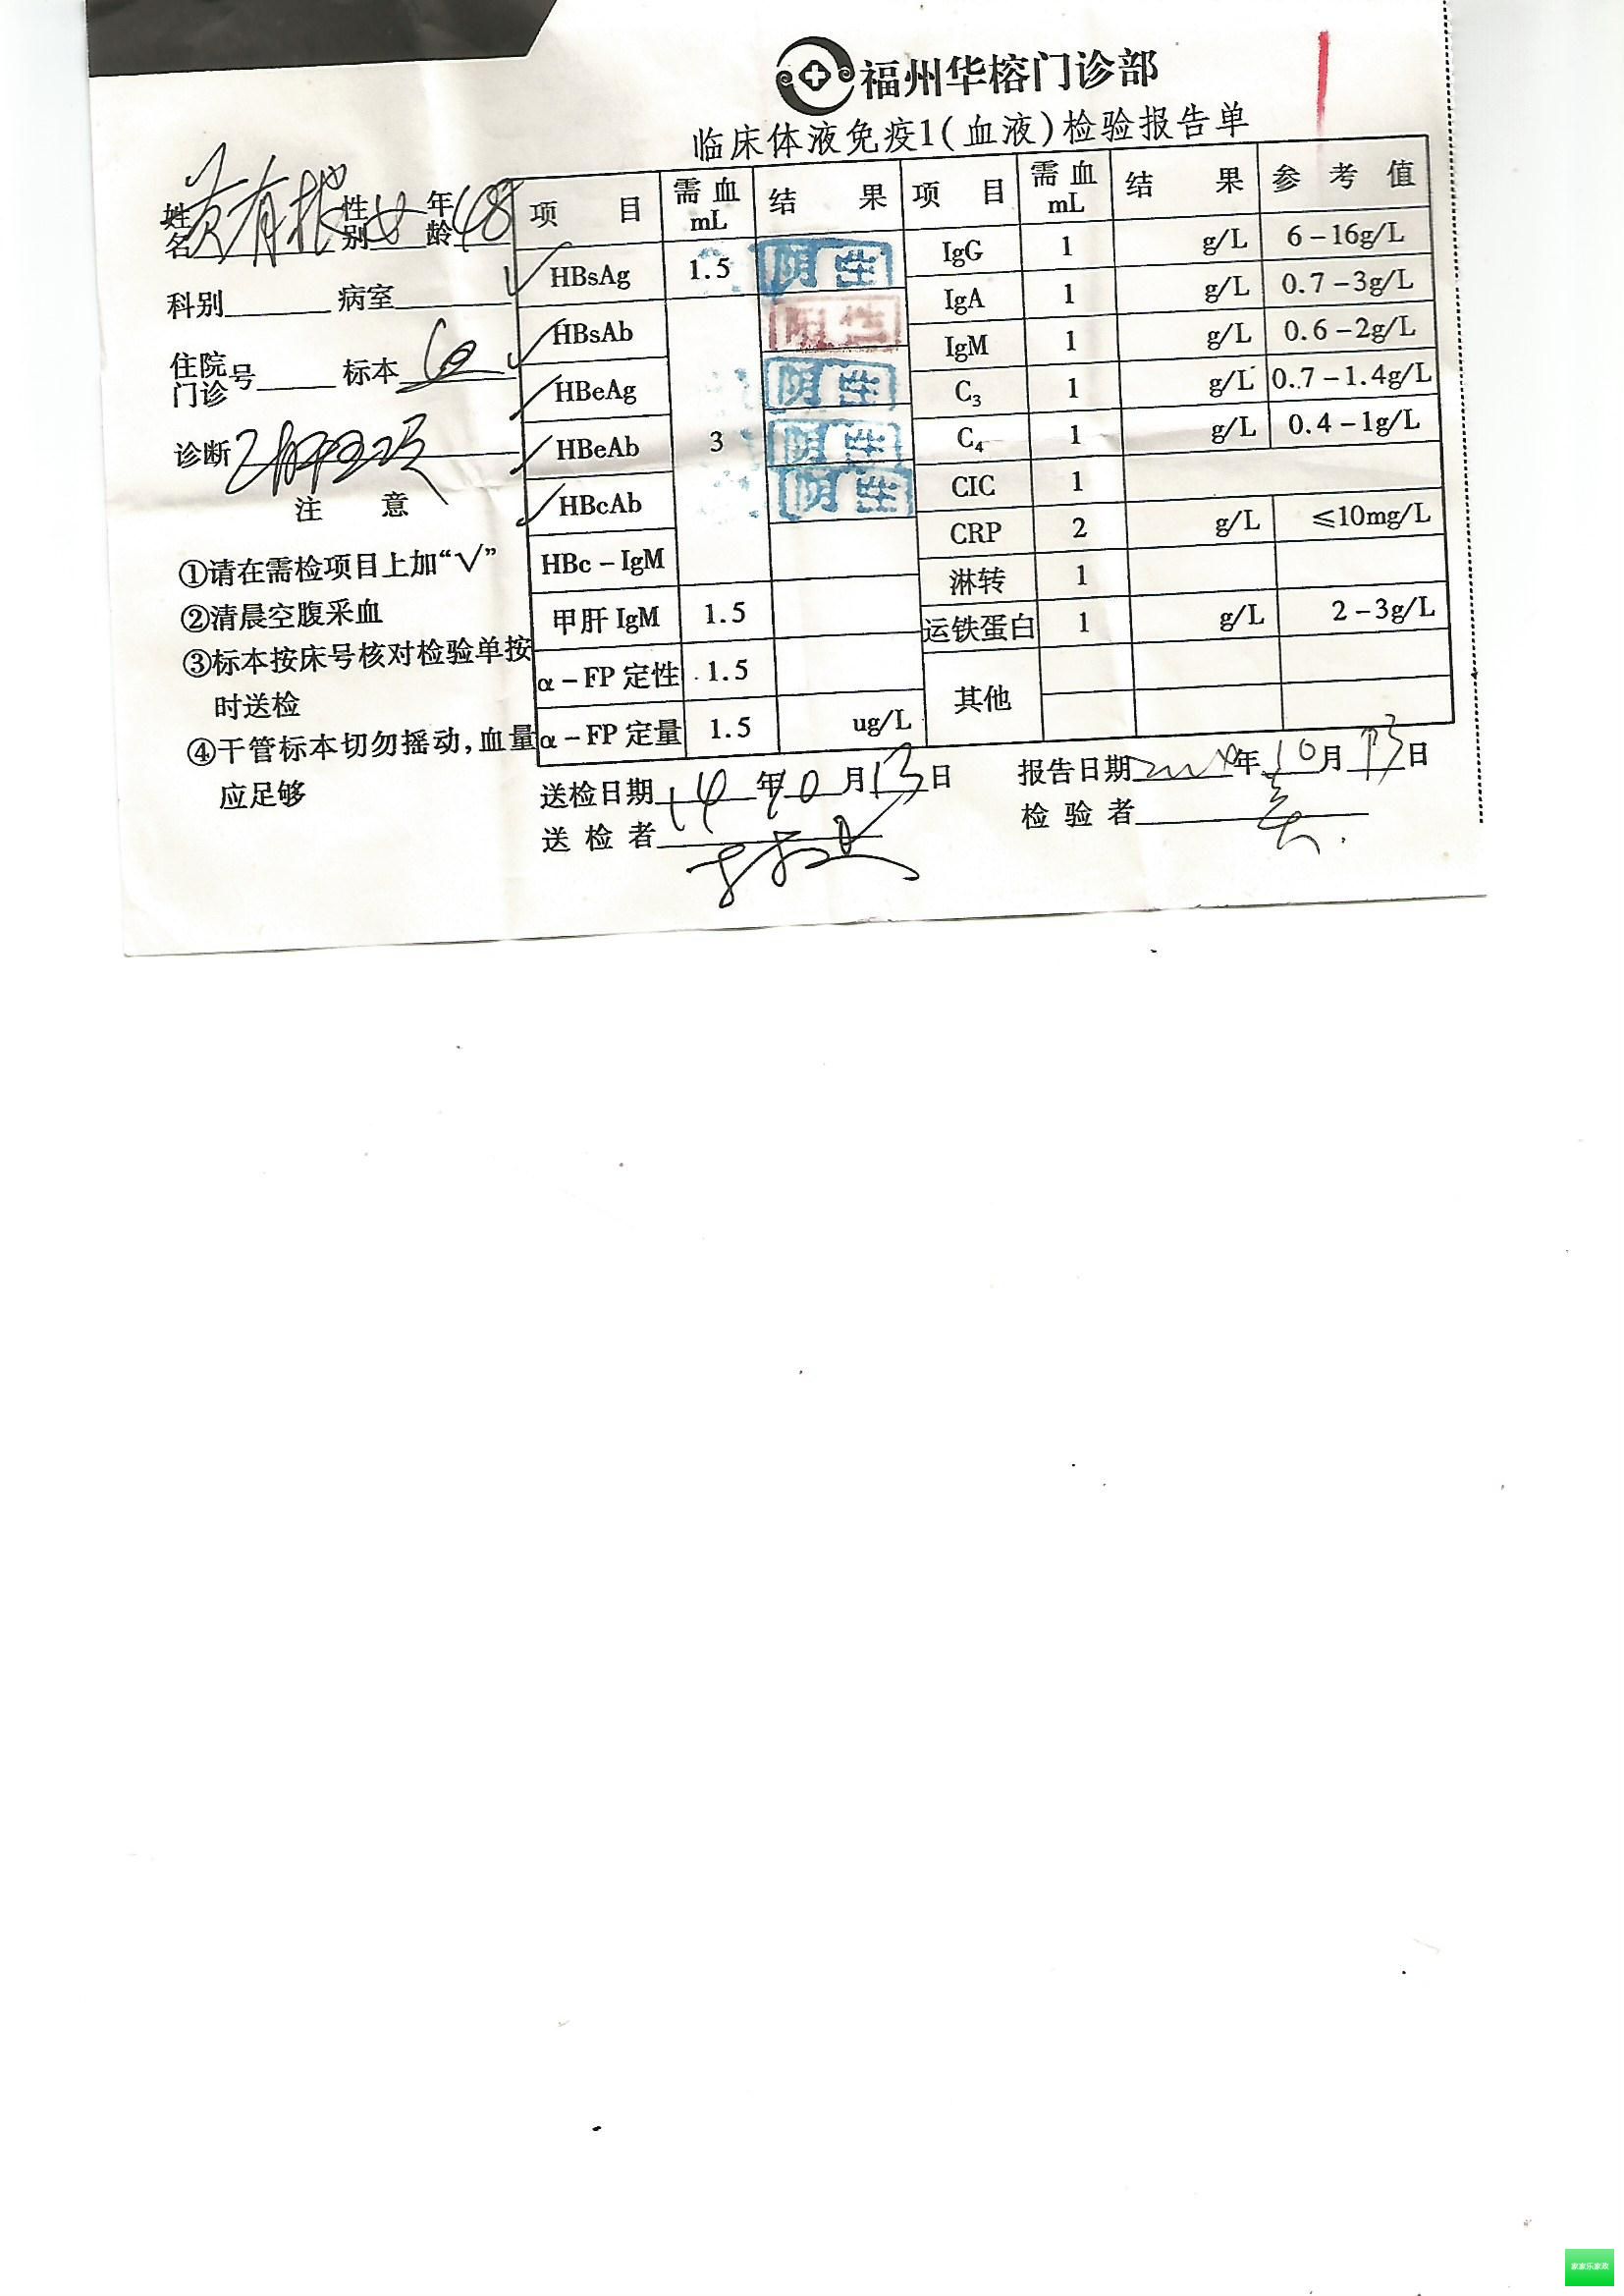 福州华榕门诊部
临床体液免疫1(血液)检验报告单
姓名 黄有根 性别 女 年龄 48
科别 病室
住院门诊号 标本 血
诊断 乙肝五项
注 意
①请在需检项目上加“√”
②清晨空腹采血
③标本按床号核对检验单按
时送检
④干管标本切勿摇动,血量
应足够
项 目 需血mL 结 果 项 目 需血mL 结 果 参 考 值
√ HBsAg 1.5 阴性 IgG 1 g/L 6-16g/L
√ HBsAb 阳性 IgA 1 g/L 0.7-3g/L
√ HBeAg 阴性 IgM 1 g/L 0.6-2g/L
√ HBeAb 3 阴性 C3 1 g/L 0.7-1.4g/L
√ HBcAb 阴性 C4 1 g/L 0.4-1g/L
HBc-IgM CIC 1
甲肝 IgM 1.5 CRP 2 g/L ≤10mg/L
α-FP 定性 1.5 淋转 1
α-FP 定量 1.5 ug/L 运铁蛋白 1 g/L 2-3g/L
其他
送检日期 14 年 10 月 13 日 报告日期 年 10 月 13 日
送 检 者 检 验 者
家家乐家政